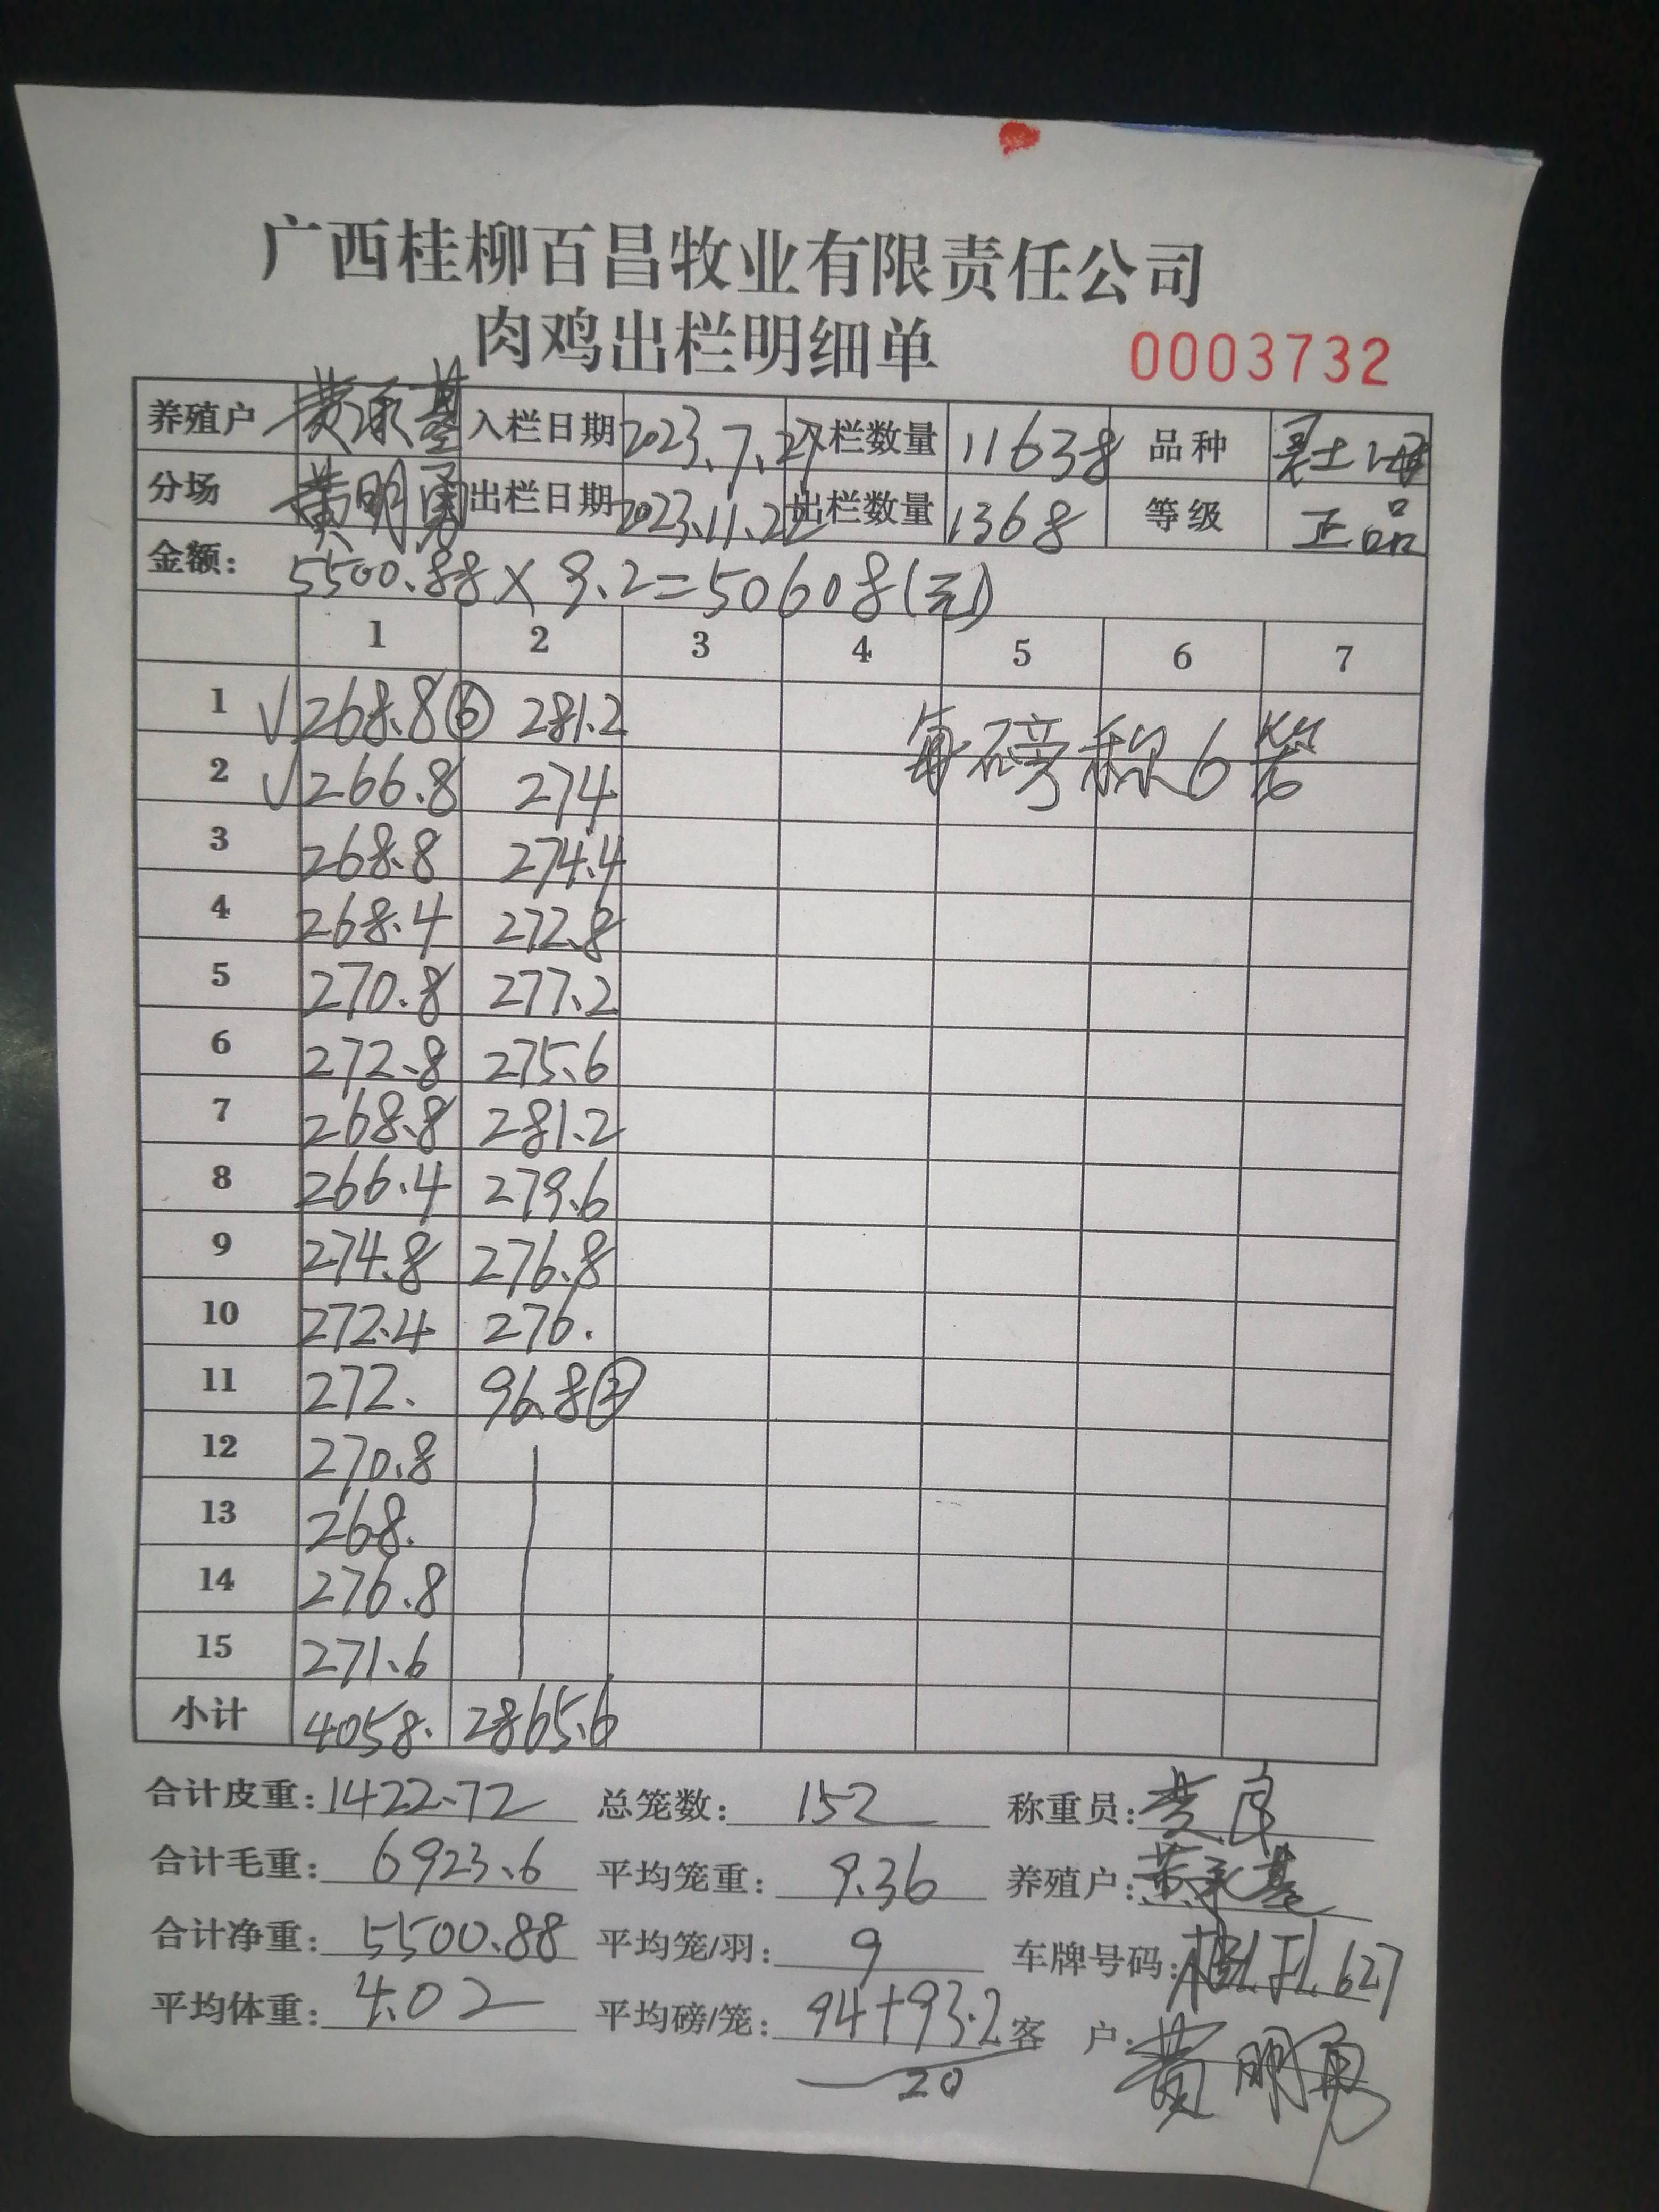 广西桂柳百昌牧业有限责任公司
肉鸡出栏明细单 0003732
养殖户 黄承基 入栏日期 2023.7.27 入栏数量 11638 品种
分场 黄明勇 出栏日期 2023.11.22 出栏数量 1368 等级 正品
金额: 5500.88×9.2=50608(元)
1 2 3 4 5 6 7
1 √268.8⑥ 281.2
每磅称6笼
2 √266.8 274
3 268.8 274.4
4 268.4 272.8
5 270.8 277.2
6 272.8 275.6
7 268.8 281.2
8 266.4 279.6
9 274.8 276.8
10 272.4 276.
11 272. 96.8②
12 270.8
13 268.
14 276.8
15 271.6
小计 4058. 2865.6
合计皮重: 1422.72 总笼数: 152 称重员:
合计毛重: 6923.6 平均笼重: 9.36 养殖户: 黄承基
合计净重: 5500.88 平均笼/羽: 9 车牌号码:
平均体重: 4.02 平均磅/笼: 94+93.2 客 户: 黄明勇
20